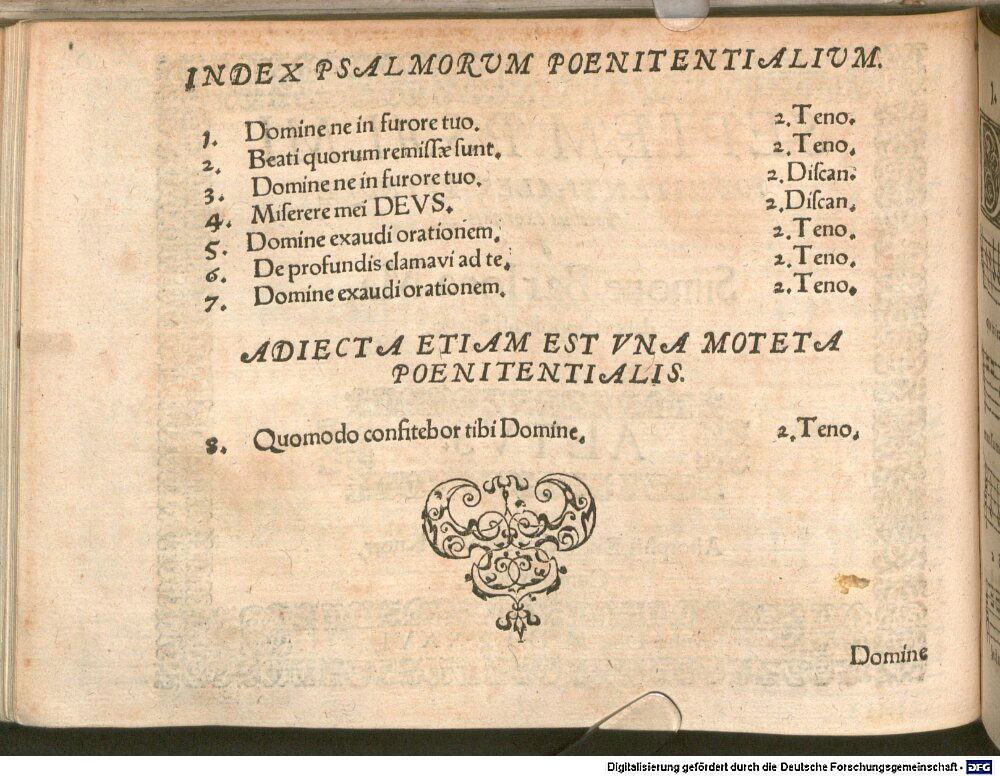 INDEX PSALMORVM POENITENTIALIVM.
1. Domine ne in furore tuo. 2. Teno.
2. Beati quorum remiſſæ ſunt. 2. Teno.
3. Domine ne in furore tuo. 2. Diſcan.
4. Miſerere mei DEVS. 2. Diſcan.
5. Domine exaudi orationem. 2. Teno.
6. De profundis clamavi ad te. 2. Teno.
7. Domine exaudi orationem. 2. Teno.
ADIECTA ETIAM EST VNA MOTETA
POENITENTIALIS.
8. Quomodo confitebor tibi Domine. 2. Teno.
Domine
Digitalisierung gefördert durch die Deutsche Forschungsgemeinschaft - DFG